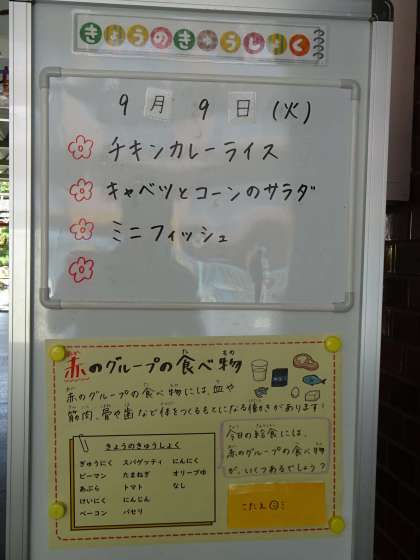 きょうのきゅうしょく
9月9日(火)
チキンカレーライス
キャベツとコーンのサラダ
ミニフィッシュ
赤のグループの食べ物
赤のグループの食べ物には、血や
筋肉、骨や歯など体をつくるもとになる働きがあります!
きょうのきゅうしょく
ぎゅうにく スパゲッティ にんにく
ピーマン たまねぎ オリーブゆ
あぶら トマト なし
けいにく にんじん
ベーコン パセリ
今日の給食には、
赤のグループの食べ物
が、いくつあるでしょう?
こたえ